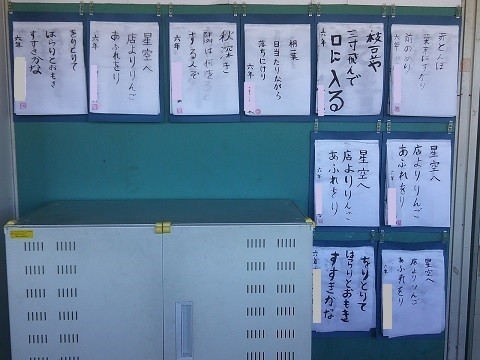 赤とんぼ
葉末にすがり
前のめり
六年
枝豆や
三寸飛んで
口に入る
六年
桐一葉
日当たりながら
落ちにけり
六年
秋深き
隣は何を
する人ぞ
六年
星空へ
店よりりんご
あふれをり
六年
をりとりて
はらりとおもき
すすきかな
六年
星空へ
店よりりんご
あふれをり
星空へ
店よりりんご
あふれをり
六年
星空へ
店よりりんご
あふれをり
をりとりて
はらりとおもき
すすきかな
六年